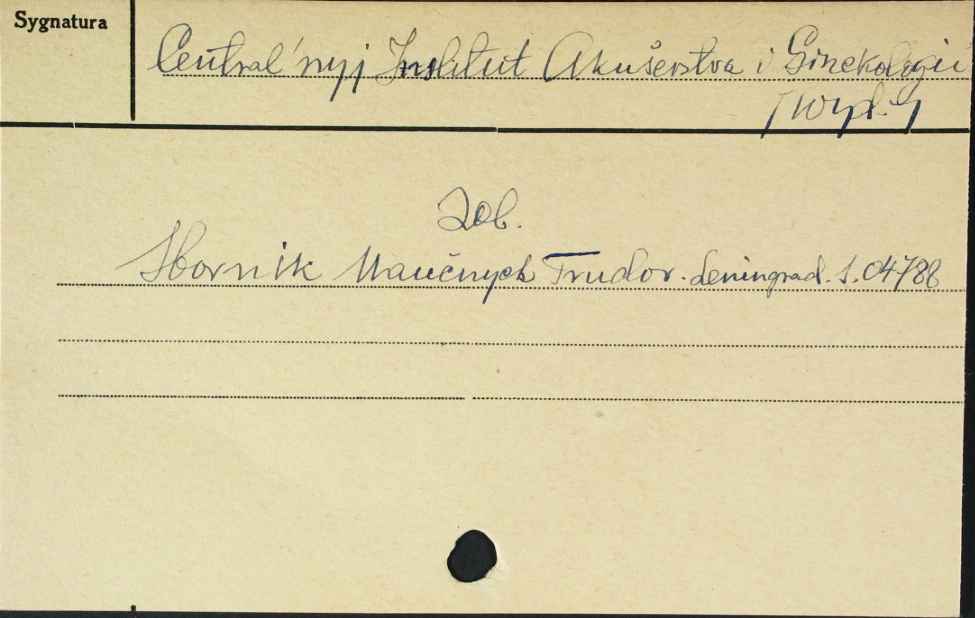 Sygnatura
Central'nyj Institut Akušerstva i Ginekologii
/wyd./
Zob.
Sbornik Naučnych Trudov. Leningrad. S. 04788